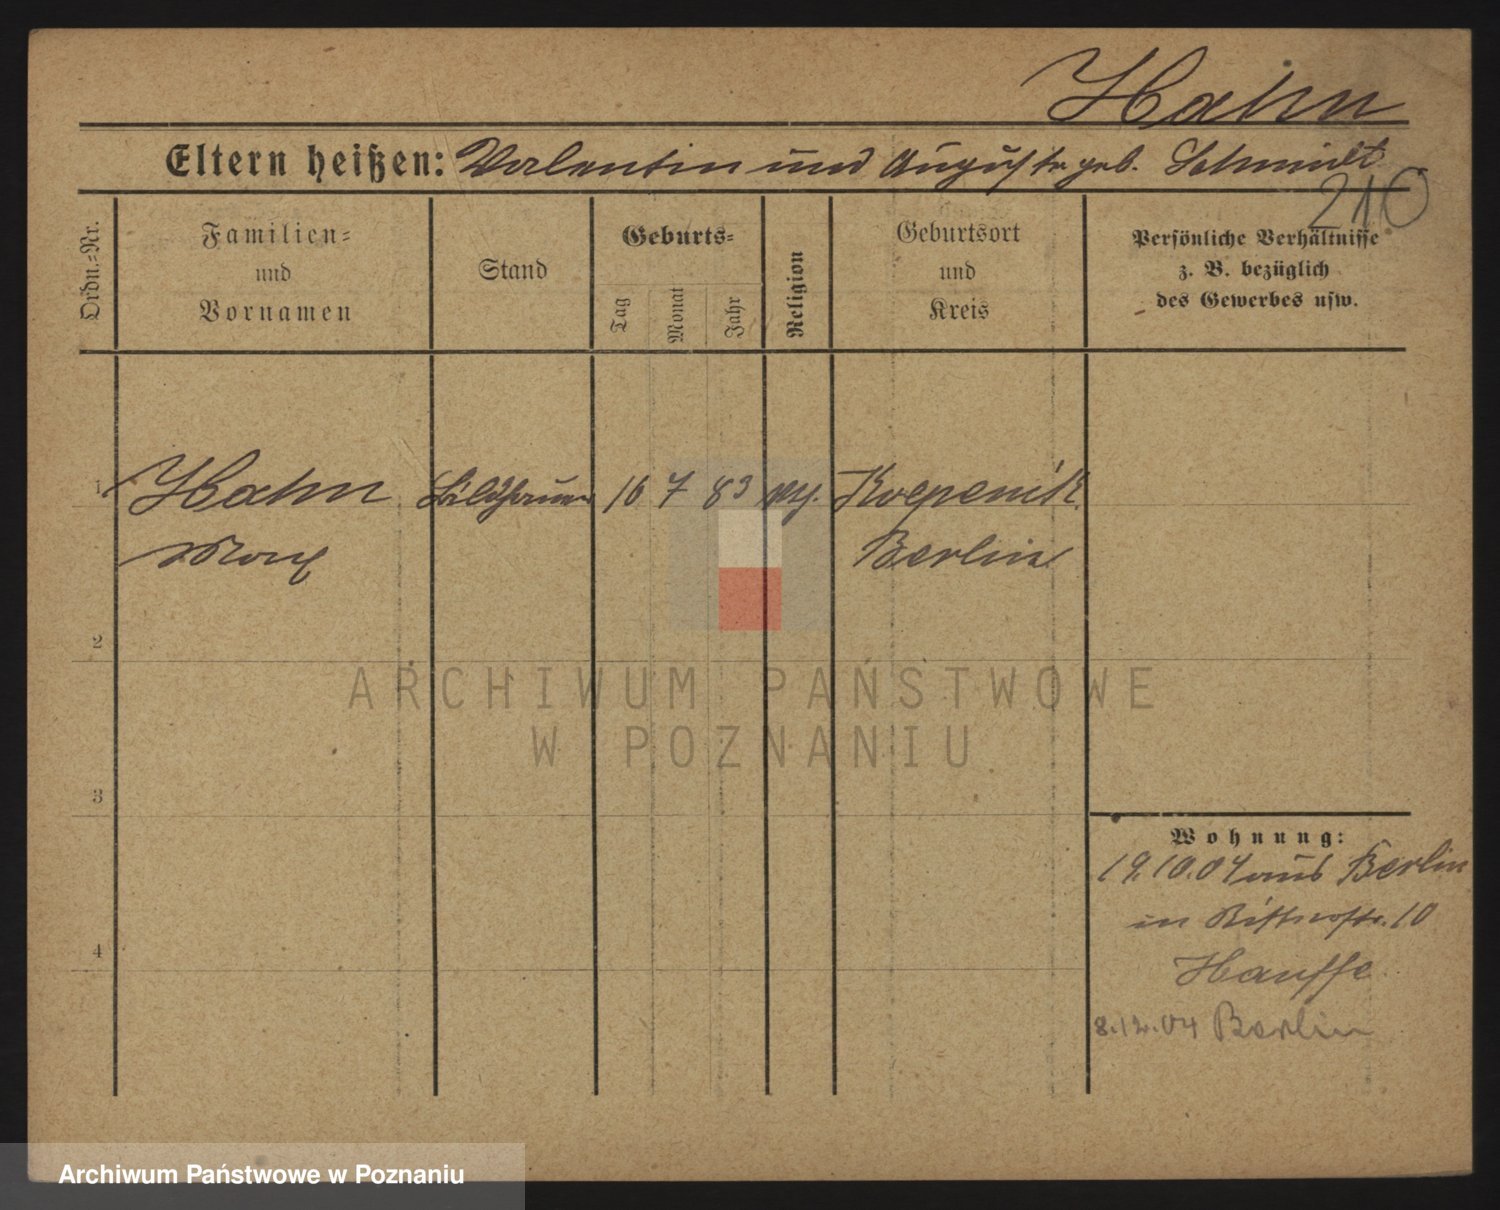 Hahn
Eltern heißen: Valentin und Auguste geb. Schmidt
210
Ordn.-Nr.
Familien-
und
Vornamen
Stand
Geburts-
Tag
Monat
Jahr
Religion
Geburtsort
und
Kreis
Persönliche Verhältnisse
z. B. bezüglich
des Gewerbes usw.
1 Hahn Bildhauer 16 7 83 Koepenik
Max Berlin
2
3
4
Wohnung:
19.10.04 aus Berlin
in 10
Hauffe
8.12.04 Berlin
ARCHIWUM PAŃSTWOWE
W POZNANIU
Archiwum Państwowe w Poznaniu